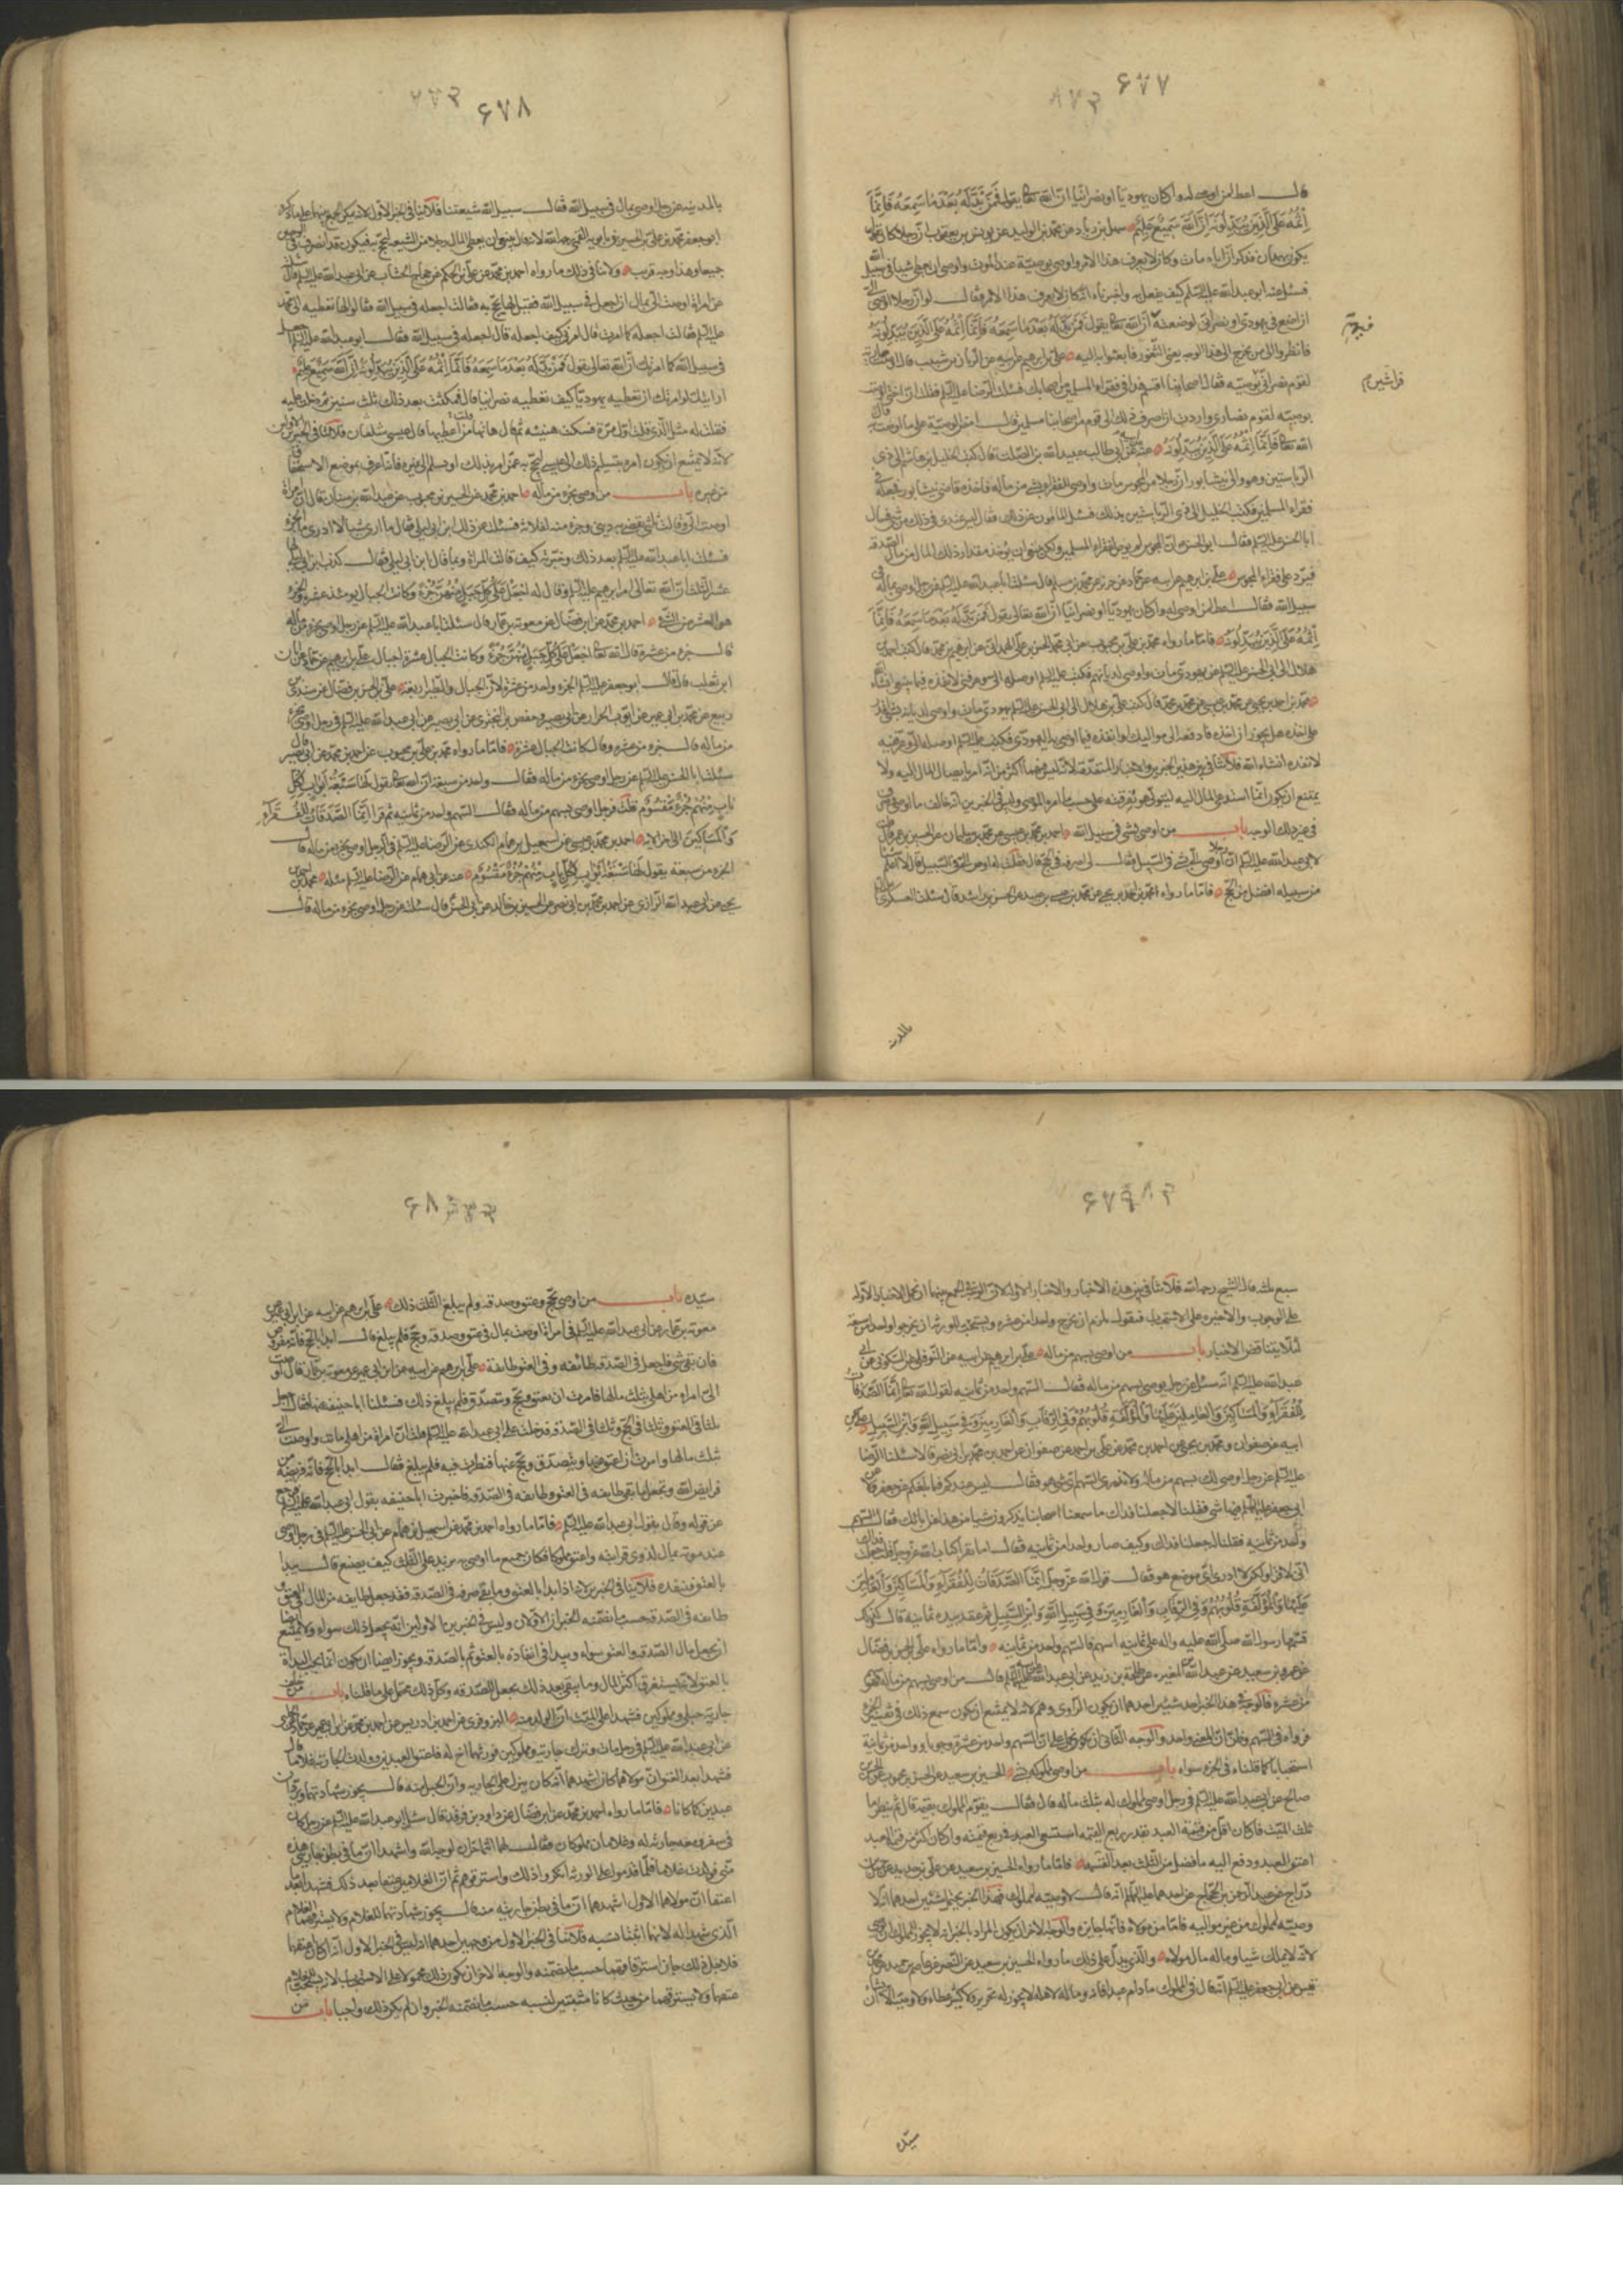 ۶۷۷
قال اعط لمن اوصى له وان كان يهوديا او نصرانيا ان الله تعالى يقول فَمَنْ بَدَّلَهُ بَعْدَ مَا سَمِعَهُ فَاِنَّمَا
اِثْمُهُ عَلَى الَّذِينَ يُبَدِّلُونَهُ اِنَّ اللَّهَ سَمِيعٌ عَلِيمٌ سهل بن زياد عن محمد بن الوليد عن يونس بن يعقوب ان رجلا كان
يكون بهمدان فذكر ان اباه مات وكان لا يعرف هذا الامر واوصى بوصية عند الموت واوصى ان يعطى شيئا في سبيل الله
فسئل عنه ابو عبد الله عليه السلام كيف يفعل به واخبرناه انه كان لا يعرف هذا الامر فقال لو ان رجلا اوصى الي
ان اضع في يهودي او نصراني لوضعته ان الله تعالى يقول فَمَنْ بَدَّلَهُ بَعْدَ مَا سَمِعَهُ فَاِنَّمَا اِثْمُهُ عَلَى الَّذِينَ يُبَدِّلُونَهُ
فانظروا الى من يخرج الى هذا الوجه يعني الثغور فابعثوا به اليه علي بن ابراهيم عن ابيه عن الريان بن شبيب قال اوصت
لقوم نصارى بوصيته فقال اصحابنا اقسم هذا في فقراء المسلمين من اصحابك فسئلت الرضا عليه السلام فقلت ان اختي اوصت
بوصية لقوم نصارى واردت ان اصرف ذلك الى قوم من اصحابنا مسلمين فقال امض الوصية على ما اوصت به قال
الله تعالى فَاِنَّمَا اِثْمُهُ عَلَى الَّذِينَ يُبَدِّلُونَهُ عنه عن ابي طالب عبد الله بن الصلت قال كتب الخليل بن هاشم الى ذي
الرياستين وهو والي نيشابور ان رجلا من المجوس مات واوصى للفقراء بشيء من ماله فاخذه قاضي نيشابور فجعله في
فقراء المسلمين فكتب الخليل الى ذي الرياستين بذلك فسئل المامون عن ذلك فقال ليس عندي في ذلك شيء فسال
ابا الحسن عليه السلام فقال ابو الحسن ان المجوسي لم يوص لفقراء المسلمين ولكن ينبغي ان يؤخذ مقدار ذلك المال من مال الصدقة
فيرد على فقراء المجوس علي بن ابراهيم عن ابيه عن حماد عن حريز عن محمد بن مسلم قال سئلت ابا عبد الله عليه السلام عن رجل اوصى بماله في
سبيل الله فقال اعط لمن اوصى له وان كان يهوديا او نصرانيا ان الله تعالى يقول فَمَنْ بَدَّلَهُ بَعْدَ مَا سَمِعَهُ فَاِنَّمَا
اِثْمُهُ عَلَى الَّذِينَ يُبَدِّلُونَهُ فاما ما رواه محمد بن علي بن محبوب عن ابي محمد الحسن بن علي الهمداني عن ابراهيم بن محمد قال كتب احمد بن
هلال الى ابي الحسن عليه السلام عن يهودي مات واوصى لديانهم فكتب عليه السلام اوصله الي وعرفني لانفذه فيما ينبغي انشاء الله
محمد بن احمد بن يحيى عن محمد بن عيسى عن محمد بن محمد قال كتب علي بن هلال الى ابي الحسن عليه السلام يهودي مات واوصى لديانه بشيء اقدر
على اخذه هل يجوز ان اخذه فادفعه الى مواليك او انفذه فيما اوصى به اليهودي فكتب عليه السلام اوصله الي وعرفنيه
لانفذه انشاء الله فلا تنافي بين هذين الخبرين والاخبار المتقدمة لانه ليس فيهما اكثر من انه امر بايصال المال اليه ولا
يمتنع ان يكون انما استدعى المال اليه ليتولى هو تفرقته على حسب ما امر به الموصي وليس في الخبرين انه خالف ما اوصى
في غير ذلك الوجه باب من اوصى بشيء في سبيل الله احمد بن محمد بن عيسى عن محمد بن سليمان عن الحسين بن عمر قال
لابي عبد الله عليه السلام ان رجلا اوصى الي بشيء في السبيل فقال لي اصرفه في الحج قال فقلت له اوصى الي في السبيل قال لا اعلم
من سبيله افضل من الحج فاما ما رواه محمد بن احمد بن يحيى عن محمد بن عيسى بن عبيد عن الحسن بن راشد قال سئلت العسكري
بالمدينة
۶۷۸
بالمدينة عن رجل اوصى بمال في سبيل الله فقال سبيل الله شيعتنا فلا تنافي الخبر الاول لانه يمكن الجمع بينهما على ما ذكره
ابو جعفر محمد بن علي بن الحسين بن موسى بن بابويه القمي رحمه الله لانه قال ينبغي ان يعطى المال رجلا من الشيعة ليحج به فيكون قد انصرف في الوجهين
جميعا وهذا وجه قريب ولا ينافي ذلك ما رواه احمد بن محمد عن علي بن الحكم عن حجاج الخشاب عن ابي عبد الله عليه السلام قال سئلته
عن امراة اوصت الي بمال ان اجعل في سبيل الله فقيل لها يحج به فقالت اجعله في سبيل الله فقالوا لها نعطيه ال محمد
عليه السلام فقالت اجعله في سبيل الله فقال ابو عبد الله عليه السلام اجعله
في سبيل الله كما امرتك ان الله تعالى يقول فَمَنْ بَدَّلَهُ بَعْدَ مَا سَمِعَهُ فَاِنَّمَا اِثْمُهُ عَلَى الَّذِينَ يُبَدِّلُونَهُ اِنَّ اللَّهَ سَمِيعٌ عَلِيمٌ
ارايتك لو امرتك ان تعطيه يهوديا كيف تعطيه نصرانيا قال فمكثت بعد ذلك ثلث سنين ثم دخلت عليه
فقلت له مثل الذي قلت اول مرة فسكت هنيئة ثم قال هاتها قلت من اعطيها قال عيسى شلقان فلا تنافي الخبرين الاولين
لانه لا يمتنع ان يكون امره بتسليم ذلك الى عيسى ليحج به عمن امر بذلك او يسلم الى غيره فانه اعرف بموضع الاستحقاق
من غيره باب من اوصى بجزء من ماله احمد بن محمد عن الحسين بن محبوب عن عبد الله بن سنان قال ان امراة
اوصت الي وقالت ثلثي يقضى به ديني وجزء منه لفلانة فسئلت عن ذلك ابن ابي ليلى فقال ما ارى لها شيئا لا ادري ما الجزء
فسئلت ابا عبد الله عليه السلام بعد ذلك وخبرته كيف قالت المراة وبما قال ابن ابي ليلى فقال كذب ابن ابي ليلى لها
عشر الثلث ان الله تعالى امر ابراهيم عليه السلام وقال له اجْعَلْ عَلَى كُلِّ جَبَلٍ مِنْهُنَّ جُزْءًا وكانت الجبال يومئذ عشرة والجزء
هو العشر من الشيء احمد بن محمد عن ابن فضال عن معوية بن عمار قال سئلت ابا عبد الله عليه السلام عن رجل اوصى بجزء من ماله
قال جزء من عشرة قال الله تعالى اجْعَلْ عَلَى كُلِّ جَبَلٍ مِنْهُنَّ جُزْءًا وكانت الجبال عشرة اجبال علي بن ابراهيم عن ابيه عن حماد عن ابان
ابن تغلب قال قال ابو جعفر عليه السلام الجزء واحد من عشرة لان الجبال عشرة والطير اربعة علي بن الحسن بن فضال عن سندي بن
ربيع عن محمد بن ابي عمير عن ابي ايوب الخزاز عن ابي بصير وحفص بن البختري عن ابي بصير عن ابي عبد الله عليه السلام في رجل اوصى بجزء
من ماله قال جزء من عشرة وقال كانت الجبال عشرة فاما ما رواه محمد بن علي بن محبوب عن احمد بن محمد عن ابن ابي نصر قال
سئلت ابا الحسن عليه السلام عن رجل اوصى بجزء من ماله فقال واحد من سبعة ان الله تعالى يقول لَهَا سَبْعَةُ اَبْوَابٍ لِكُلِّ
بَابٍ مِنْهُمْ جُزْءٌ مَقْسُومٌ قلت فرجل اوصى بسهم من ماله فقال السهم واحد من ثمانية ثم قرا اِنَّمَا الصَّدَقَاتُ لِلْفُقَرَاءِ
وَالْمَسَاكِينِ الى اخر الاية احمد بن محمد بن عيسى عن اسمعيل بن همام الكندي عن الرضا عليه السلام في الرجل اوصى بجزء من ماله قال
الجزء من سبعة يقول لَهَا سَبْعَةُ اَبْوَابٍ لِكُلِّ بَابٍ مِنْهُمْ جُزْءٌ مَقْسُومٌ عنه عن ابي همام عن الرضا عليه السلام مثله محمد بن احمد بن
يحيى عن ابي عبد الله الرازي عن احمد بن محمد بن ابي نصر عن الحسين بن خالد عن ابي الحسن قال سئلته عن رجل اوصى بجزء من ماله قال
۶۷۹
سبع ثلثه قال الشيخ رحمه الله فلا تنافي بين هذه الاخبار والاخبار الاولة لان الوجه في الجمع بينهما ان نحمل الاخبار الاولة
على الوجوب والاخيرة على الاستحباب فنقول يلزم ان يخرج واحد من عشرة ويستحب للورثة ان يخرجوا واحدا من سبعة
لئلا يتناقض الاخبار باب من اوصى بسهم من ماله علي بن ابراهيم عن ابيه عن النوفلي عن السكوني عن ابي
عبد الله عليه السلام انه سئل عن رجل يوصي بسهم من ماله فقال السهم واحد من ثمانية لقول الله تعالى اِنَّمَا الصَّدَقَاتُ
لِلْفُقَرَاءِ وَالْمَسَاكِينِ وَالْعَامِلِينَ عَلَيْهَا وَالْمُؤَلَّفَةِ قُلُوبُهُمْ وَفِي الرِّقَابِ وَالْغَارِمِينَ وَفِي سَبِيلِ اللَّهِ وَابْنِ السَّبِيلِ علي عن
ابيه عن صفوان ومحمد بن يحيى عن احمد بن محمد عن علي بن احمد عن صفوان عن احمد بن محمد بن ابي نصر قالا سئلنا الرضا
عليه السلام عن رجل اوصى لك بسهم من ماله ولا ندري السهم اي شيء هو فقال ليس عندكم فيما بلغكم عن جعفر ولا عن
ابي جعفر عليهما السلام فيها شيء فقلنا له جعلنا فداك ما سمعنا اصحابنا يذكرون شيئا من هذا عن ابائك فقال السهم
واحد من ثمانية فقلنا له جعلنا فداك وكيف صار واحدا من ثمانية فقال اما تقرا كتاب الله عز وجل قلت جعلت فداك
اني لاقراه ولكن لا ادري اي موضع هو فقال قول الله عز وجل اِنَّمَا الصَّدَقَاتُ لِلْفُقَرَاءِ وَالْمَسَاكِينِ وَالْعَامِلِينَ
عَلَيْهَا وَالْمُؤَلَّفَةِ قُلُوبُهُمْ وَفِي الرِّقَابِ وَالْغَارِمِينَ وَفِي سَبِيلِ اللَّهِ وَابْنِ السَّبِيلِ ثم عقد بيده ثمانية قال وكذلك
قسمها رسول الله صلى الله عليه واله على ثمانية اسهم فالسهم واحد من ثمانية واما ما رواه علي بن الحسن بن فضال
عن عمرو بن سعيد عن عبد الله بن المغيرة عن طلحة بن زيد عن ابي عبد الله عليه السلام قال من اوصى بسهم من ماله فهو سهم
من عشرة فالوجه في هذا الخبر احد شيئين احدهما ان يكون الراوي وهم لانه لا يمتنع ان يكون سمع ذلك في تفسير الجزء
فرواه في السهم وظن ان المعنى واحد والوجه الثاني ان يكون نحمل على ان السهم واحد من عشرة وجوبا وواحد من ثمانية
استحبابا كما قلناه في الجزء سواء باب من اوصى لمملوكه بشيء الحسين بن سعيد عن الحسن بن محبوب عن الحسن بن
صالح عن ابي عبد الله عليه السلام في رجل اوصى لمملوك له بثلث ماله قال فقال يقوم المملوك بقيمته قال ثم ينظر ما
ثلث الميت فان كان اقل من قيمة العبد بقدر ربع القيمة استسعى العبد في ربع قيمته وان كان اكثر من قيمة العبد
اعتق العبد ودفع اليه ما فضل من الثلث بعد القيمة فاما ما رواه الحسين بن سعيد عن علي بن حديد عن جميل بن
دراج عن عبد الرحمن بن الحجاج عن احدهما عليهما السلام انه قال لا وصية لمملوك فهذا الخبر يحتمل شيئين احدهما ان لا
وصية لمملوك من غير مواليه فاما من مولاه فانها جايزة والوجه الاخر ان يكون المراد بالخبر انه لا يجوز للمملوك ان يوصي
لانه لا يملك شيئا وماله مال مولاه والذي يدل على ذلك ما رواه الحسين بن سعيد عن النضر عن عاصم بن حميد عن محمد بن
قيس عن ابي جعفر عليه السلام انه قال في المملوك ما دام عبدا فانه وماله لاهله لا يجوز له تحرير ولا كثير عطاء ولا وصية الا ان يشاء
سيده
۶۸۰
سيده باب من اوصى بحج وعتق وصدقة ولم يبلغ الثلث ذلك علي بن ابراهيم عن ابيه عن ابن ابي عمير عن
معوية بن عمار عن ابي عبد الله عليه السلام في امراة اوصت بمال في عتق وصدقة وحج فلم يبلغ قال ابدا بالحج فانه مفروض
فان بقي شيء فاجعل في الصدقة طائفة وفي العتق طائفة علي بن ابراهيم عن ابيه عن ابن ابي عمير عن معوية بن عمار قال اوصت
الي امراة من اهلي بثلث مالها فامرت ان يعتق ويحج ويتصدق فلم يبلغ ذلك فسئلنا ابا حنيفة عنها فقال تجعل
ثلثا في العتق وثلثا في الحج وثلثا في الصدقة فدخلت على ابي عبد الله عليه السلام فقلت ان امراة من اهلي ماتت واوصت الي
بثلث مالها وامرت ان يعتق عنها ويتصدق ويحج عنها فنظرت فيه فلم يبلغ فقال ابدا بالحج فانه فريضة من
فرايض الله وتجعل ما بقي طايفة في العتق وطايفة في الصدقة فاخبرت ابا حنيفة بقول ابي عبد الله عليه السلام فرجع
عن قوله وقال بقول ابي عبد الله عليه السلام فاما ما رواه احمد بن محمد عن اسمعيل بن همام عن ابي الحسن عليه السلام في رجل اوصى
عند موته بمال لذوي قرابته واعتق مملوكا فكان جميع ما اوصى به يزيد على الثلث كيف يصنع قال يبدا
بالعتق فينفذه فلا ينافي الخبرين لانه اذا بدا بالعتق وما بقي صرفه في الصدقة فقد جعل طايفة من المال في العتق و
طايفة في الصدقة حسب ما تضمنه الخبران الاولان وليس في الخبرين الاولين انه يجعل ذلك سواء ولا يمتنع ايضا
ان يجعل مال الصدقة والعتق سواء ويبدا في انفاذه بالعتق ثم بالصدقة ويجوز ايضا ان يكون انما يجب البداة
بالعتق لانه يستغرق اكثر المال وما يبقى بعد ذلك يجعل للصدقة وكل ذلك محتمل على ما قلناه باب من خلف
جارية حبلى ومملوكين فشهدا على الميت ان الولد منه البزوفري عن احمد بن ادريس عن احمد بن محمد عن ابن ابي عمير عن حماد عن الحلبي
عن ابي عبد الله عليه السلام في رجل مات وترك جارية ومملوكين فورثهما اخ له فاعتق العبدين وولدت الجارية غلاما
فشهدا بعد العتق ان مولاهما كان اشهدهما انه كان ينزل على الجارية وان الحبل منه قال يجوز شهادتهما ويردان
عبدين كما كانا فاما ما رواه احمد بن محمد عن ابن فضال عن داود بن فرقد قال سئل ابو عبد الله عليه السلام عن رجل كان
في سفر ومعه جارية له وغلامان مملوكان فقال لهما انتما احرار لوجه الله واشهدا ان ما في بطن جاريتي هذه
مني فولدت غلاما فلما قدموا على الورثة انكروا ذلك واسترقوهم ثم ان الغلامين عتقا بعد ذلك فشهدا بعد ما
اعتقا ان مولاهما الاول اشهدهما ان ما في بطن جاريته منه قال يجوز شهادتهما للغلام ولا يسترقهما الغلام
الذي شهدا له لانهما اثبتا نسبه فلا ينافي الخبر الاول من وجهين احدهما انه ليس في الخبر الاول انه كان اعتقهما
فلاجل ذلك جاز استرقاقهما حسب ما تضمنه والوجه الاخر ان يكون ذلك محمولا على الاستحباب لانه يستحب للغلام
عتقهما ولا يسترقهما من حيث كانا مثبتين لنسبه حسب ما تضمنه الخبر وان لم يكن ذلك واجبا باب من